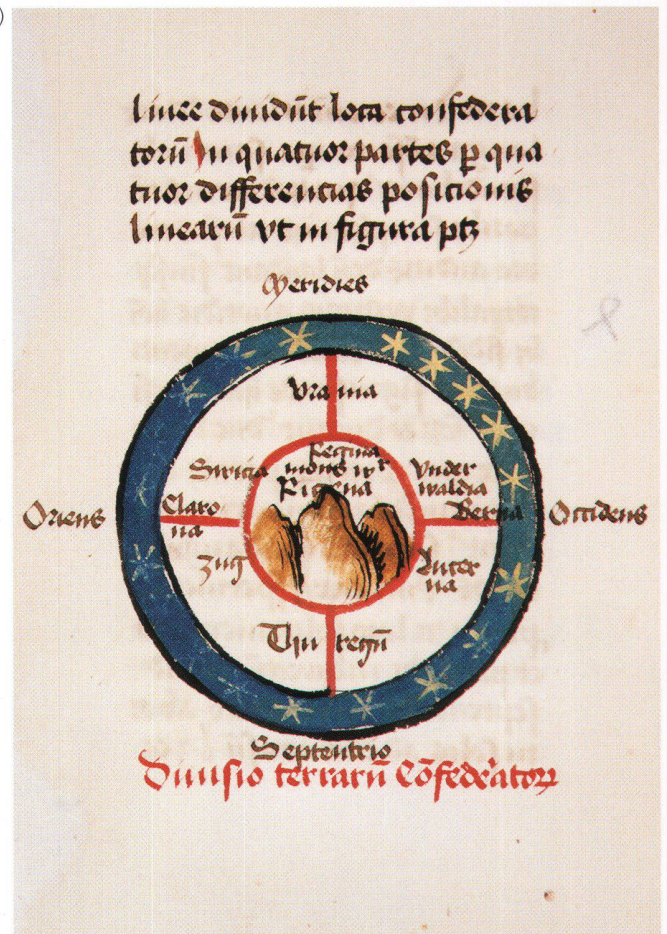 )
linee diuidūt loca confedera
torū In quatuor partes p̱ qua
tuor differencias posicionis
linearū vt in figura ptꝫ
Meridies
Vrania
Regina
mons
Rigena
Swicia
Vnder
waldia
Oriens
Claro
na
Berna
Occidens
Zug
Lucer
na
Thuregū
Septentrio
Diuisio terrarū Cōfederatoꝝ